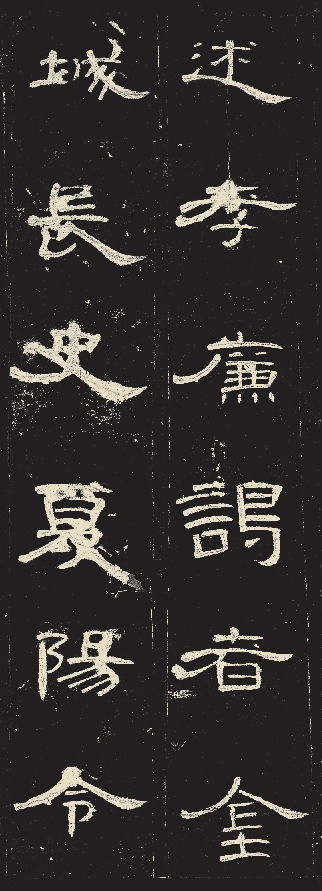 述孝廉謁者金
城長史夏陽令